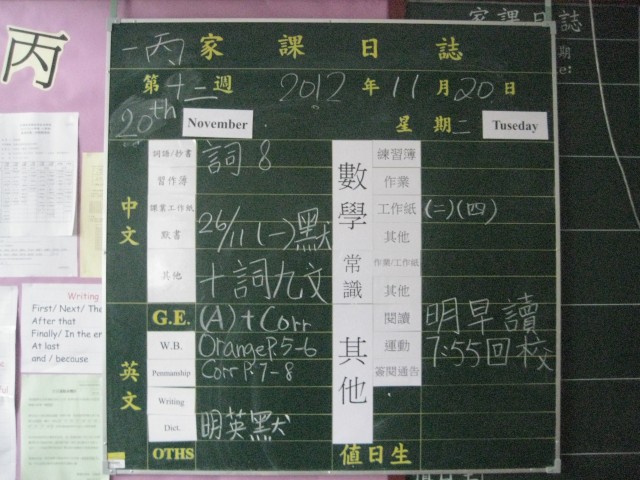 丙
家課日誌
一丙 家課日誌
第十二週 2012年11月20日
20th November 星期二 Tuseday
中文
詞語/抄書 詞8
習作簿
課業工作紙
默書 26/11 (一)默
其他 十詞九文
數學
練習簿
作業
工作紙 (二)(四)
其他
常識
作業/工作紙
其他
英文
G.E. (A) + Corr
W.B. Orange P.5-6
Penmanship Corr P.7-8
Writing
Dict. 明英默
OTHS
其他
閱讀 明早讀
運動 7:55回校
簽閱通告
值日生
Writing
First/ Next/ The
After that
Finally/ In the er
At last
and / becouse